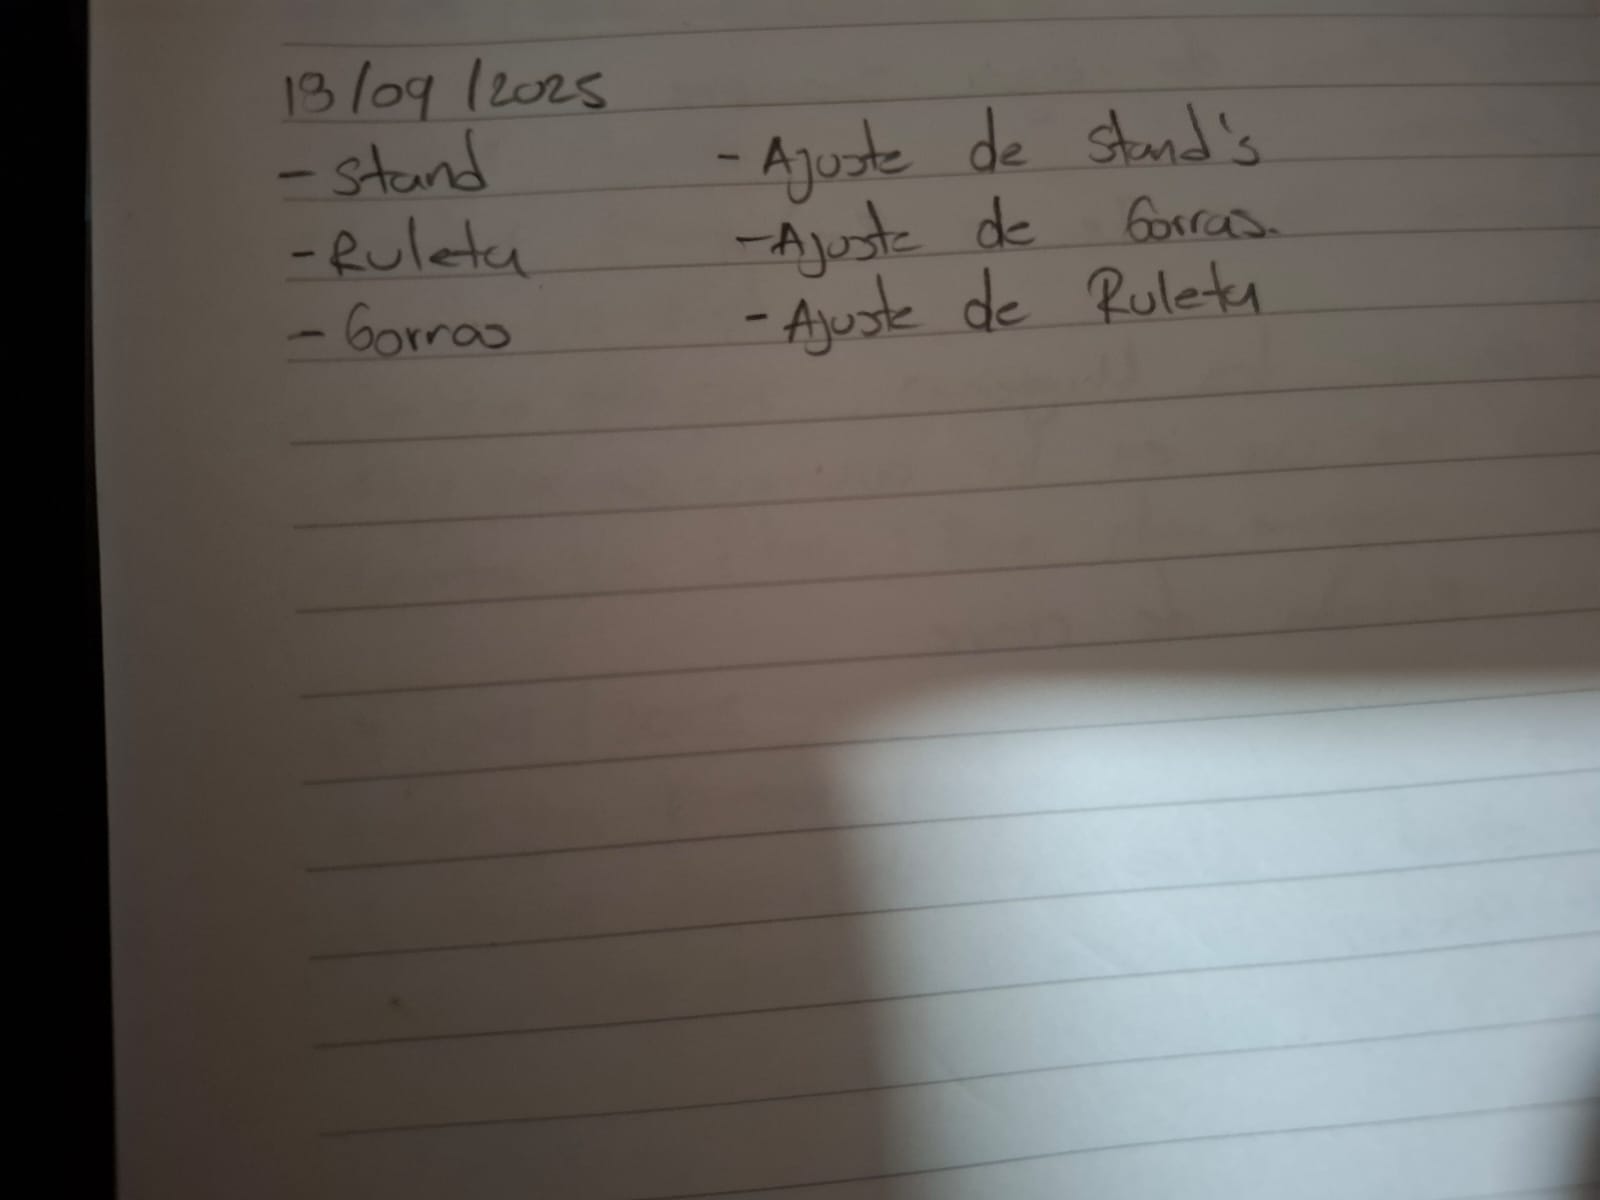 13/09/2025
- Stand - Ajuste de Stand's
- Ruleta - Ajuste de Gorras.
- Gorras - Ajuste de Ruleta